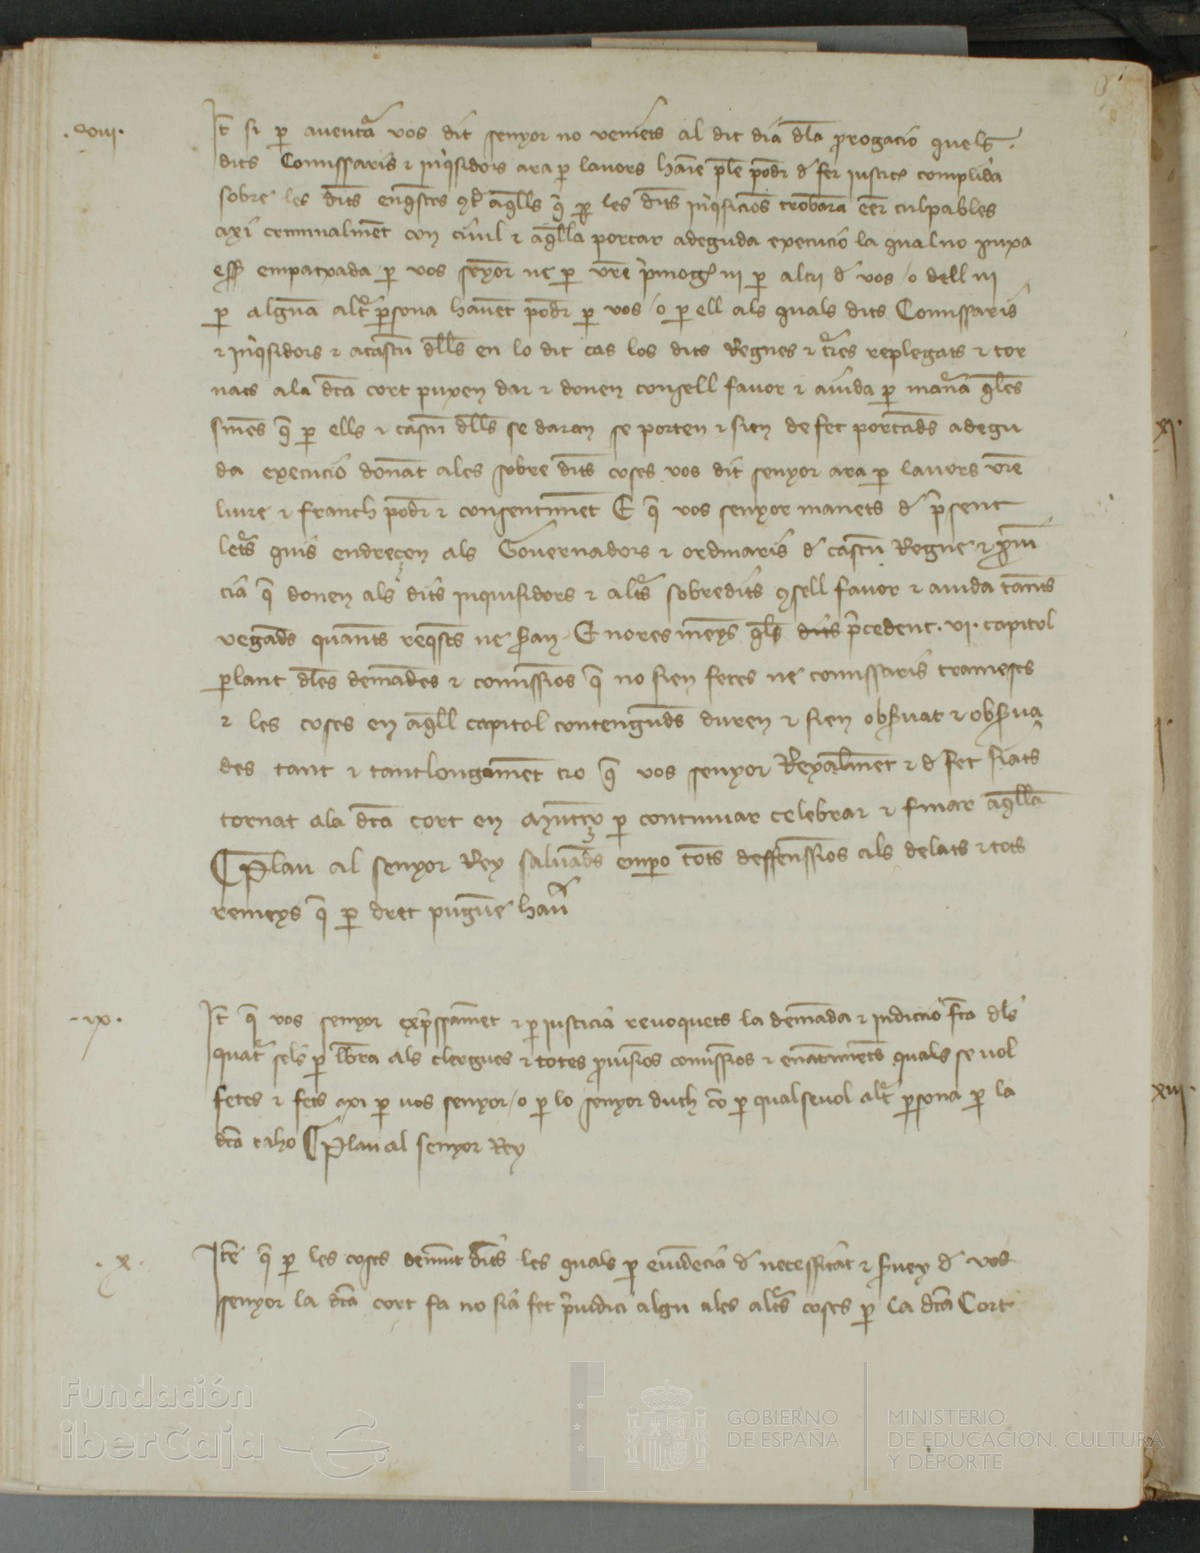 .viii. It si per auentᵃ vos dit senyor no veniets al dit dia dla progacio quels
dits Comissaris ⁊ inqͥsidors ara per lauors haie ple podr d fer iusticᵃ complida
sobre les dits enqͣstes aqlls q per les dits inqͥsicios trobara eer culpables
axi criminalmet con ciuil ⁊ aqlla portar a deguda execucio la qual no puxa
empatxada per vos senyor ne per vre pͥmogᵗ ni per altri d vos / o dell ni
per alguna altͬ psona hauet podr per vos / o per ell als quals dits Comissaris
⁊ inqͥsidors ⁊ acascu dlls en lo dit cas los dits Regnes ⁊ tͬres replegats ⁊ tor
nats ala dta cort puxen dar ⁊ donen consell fauor ⁊ aiuda per manͬa qles
q per ells ⁊ cascu dlls se daran se porten ⁊ sien de fet portads a degu
da execucio donat ales sobre dits coses vos dit senyor ara per lauors vre
liure ⁊ franch podr ⁊ consentimet E q vos senyor manets d psent
letͬs quis endreçen als Gouernadors ⁊ ordinaris d cascu Regne ⁊ pui
cia q donen als dits inquisidors ⁊ altͬs sobredits ꝯsell fauor ⁊ aiuda tants
vegads quants reqͣsts ne sran. E nores meys qls dits pcedent .vi. capitol
plant dles demades ⁊ comissios q no sien fetes ne comissaris tramests
⁊ les coses en aqll capitol contenguds duren ⁊ sien obsuat ⁊ obsua
des tant ⁊ tant longament tro q vos senyor Reyalmet ⁊ d fet siats
tornat ala dta cort en per continuar celebrar ⁊ finar aqlla
Plau al senyor Rey saluads empo tots deffenssios als delats ⁊ tots
remeys q per dret pugue hauͬ
.ix. It q vos senyor expssamet ⁊ per iusticia reuoquets la demada ⁊ indiccio fta dls
quatͬ sols per lbra als clergues ⁊ totes puisios comissios ⁊ enatamets quals se vol
fetes ⁊ fets axi per vos senyor / o per lo senyor duch co per qual seuol altͬ psona per la
dta raho Plau al senyor Rey
.x. Ite q per les coses demut dits les quals per euidecia d necessitat ⁊ suey d vos
senyor la dta cort fa no sia fet piudici algu ales altͬs coses per la dta Cort
xi.
xiii.
Fundación
iberCaja
GOBIERNO
DE ESPAÑA
MINISTERIO
DE EDUCACIÓN, CULTURA
Y DEPORTE